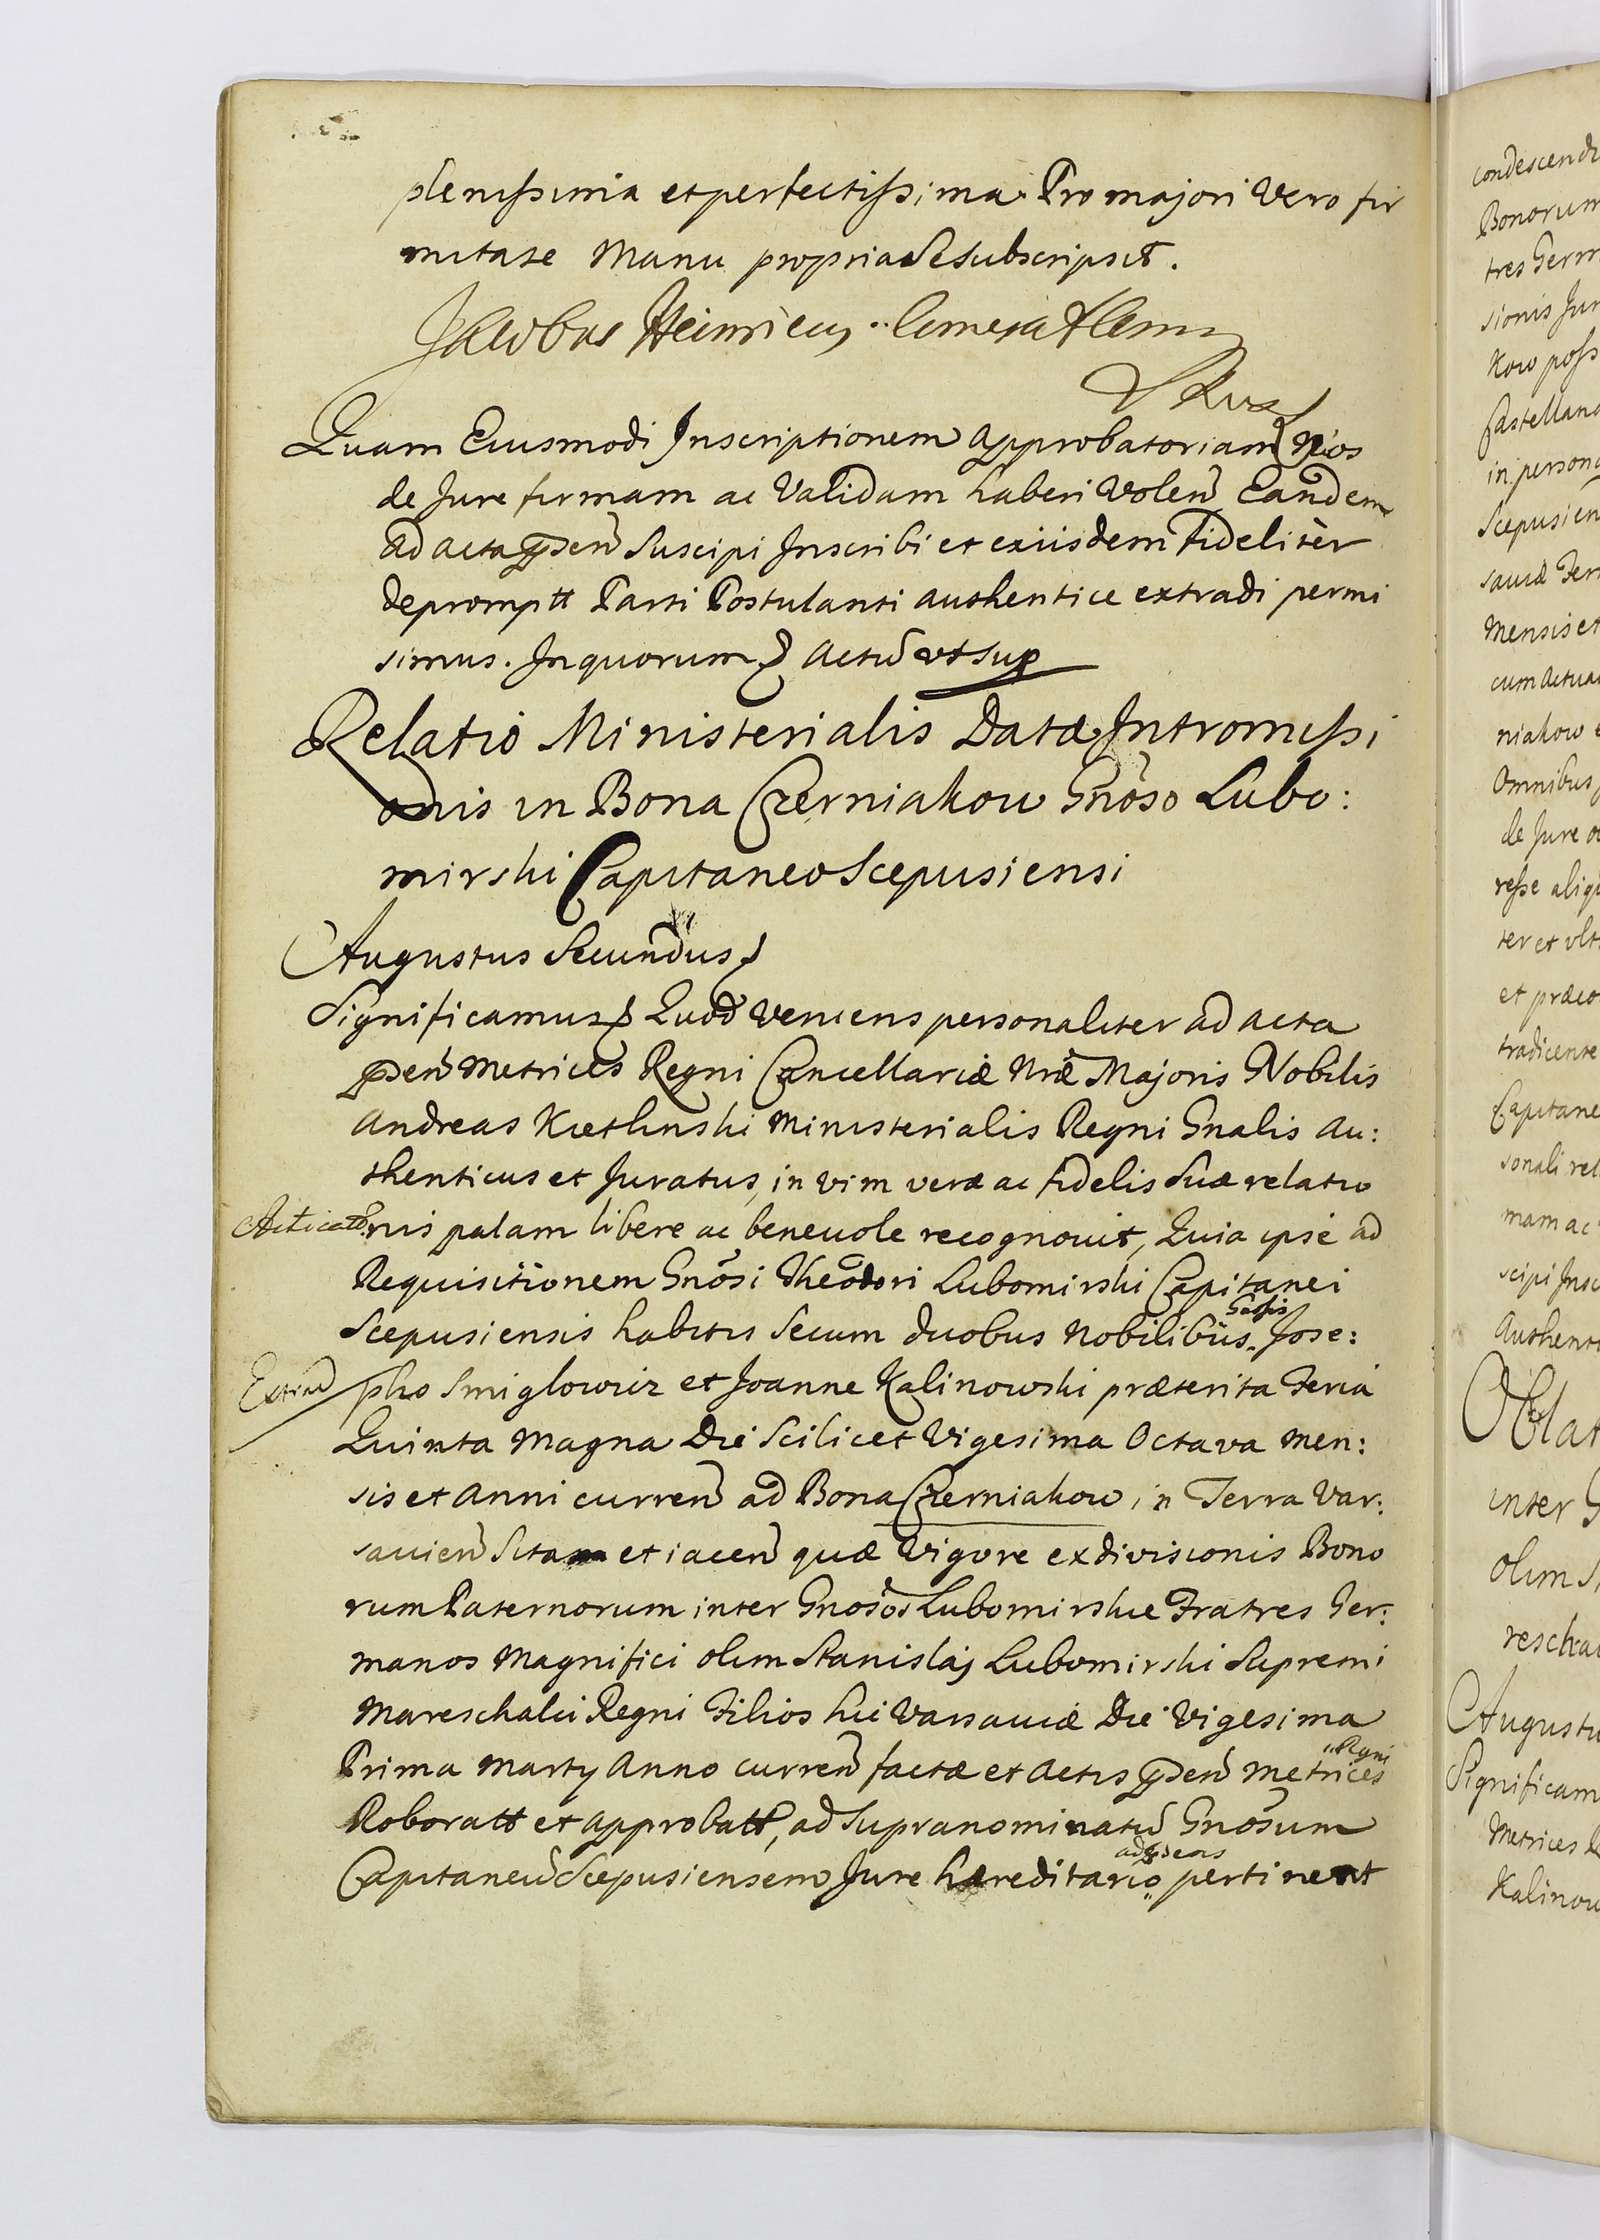 plenissima et perfectissima. Pro majori Vero fir
mitate Manu propria Se subscripsit.
Jacobus Heinricus Comes a Flem
Quam Eiusmodi Inscriptionem Approbatoriam Nos
de Jure firmam ac Validam haberi Volen Eandem
ad acta pden Suscipi Inscribi et exiisdem Fideliter
depromptt Parti Postulanti authentice extradi permi
simus. In quorum actu vt sup
Relatio Ministerialis Datæ Intromissi
onis in Bona Czerniakow Gnoso Lubo:
mirski Capitaneo Scepusiensi
Augustus Secundus
Significamus Quod veniens personaliter ad acta
pden Metrices Regni Cancellariæ Nræ Majoris Nobilis
Andreas Kietlinski Ministerialis Regni Gnalis Au:
thenticus et Juratus, in vim veræ ac fidelis Suæ relatio
nis palam libere ac beneuole recognouit, Quia ipse ad
Requisitionem Gnosi Theodori Lubomirski Capitanei
Scepusiensis habitis Secum duobus Nobilibus Jose:
pho Smiglowicz et Joanne Kalinowski præterita Feria
Quinta Magna Die Scilicet Vigesima Octava Men:
sis et Anni curren ad Bona Czerniakow in Terra Var:
sauien Sita et iacen quæ Vigore exdivisionis Bono
rum Paternorum inter Gnosos Lubomirskie Fratres Ger:
manos Magnifici olim Stanislaj Lubomirski Supremi
Mareschalci Regni Filios hic Varsauiæ Die Vigesima
Prima Martij Anno curren factæ et Actis pden Metrices
Regni
Roboratt et approbatt, ad Supranominatu Gnosum
Capitaneu Scepusiensem Jure hæreditario pertinent
Extrad
condescend
Bonorum
tres Germ
sionis Jur
kow poss
Castellano
in person
Scepusien
sauiæ Fer
Mensis et
cum Actua
niakow e
Omnibus
de Jure
resse aliq
ter et vlt
et præco
tradicente
Capitane
sonali rel
mam ac
scipi Insc
Authenti
Oblat
inter G
olim S
rescha
Augustu
Significam
Metrices
Kalinow